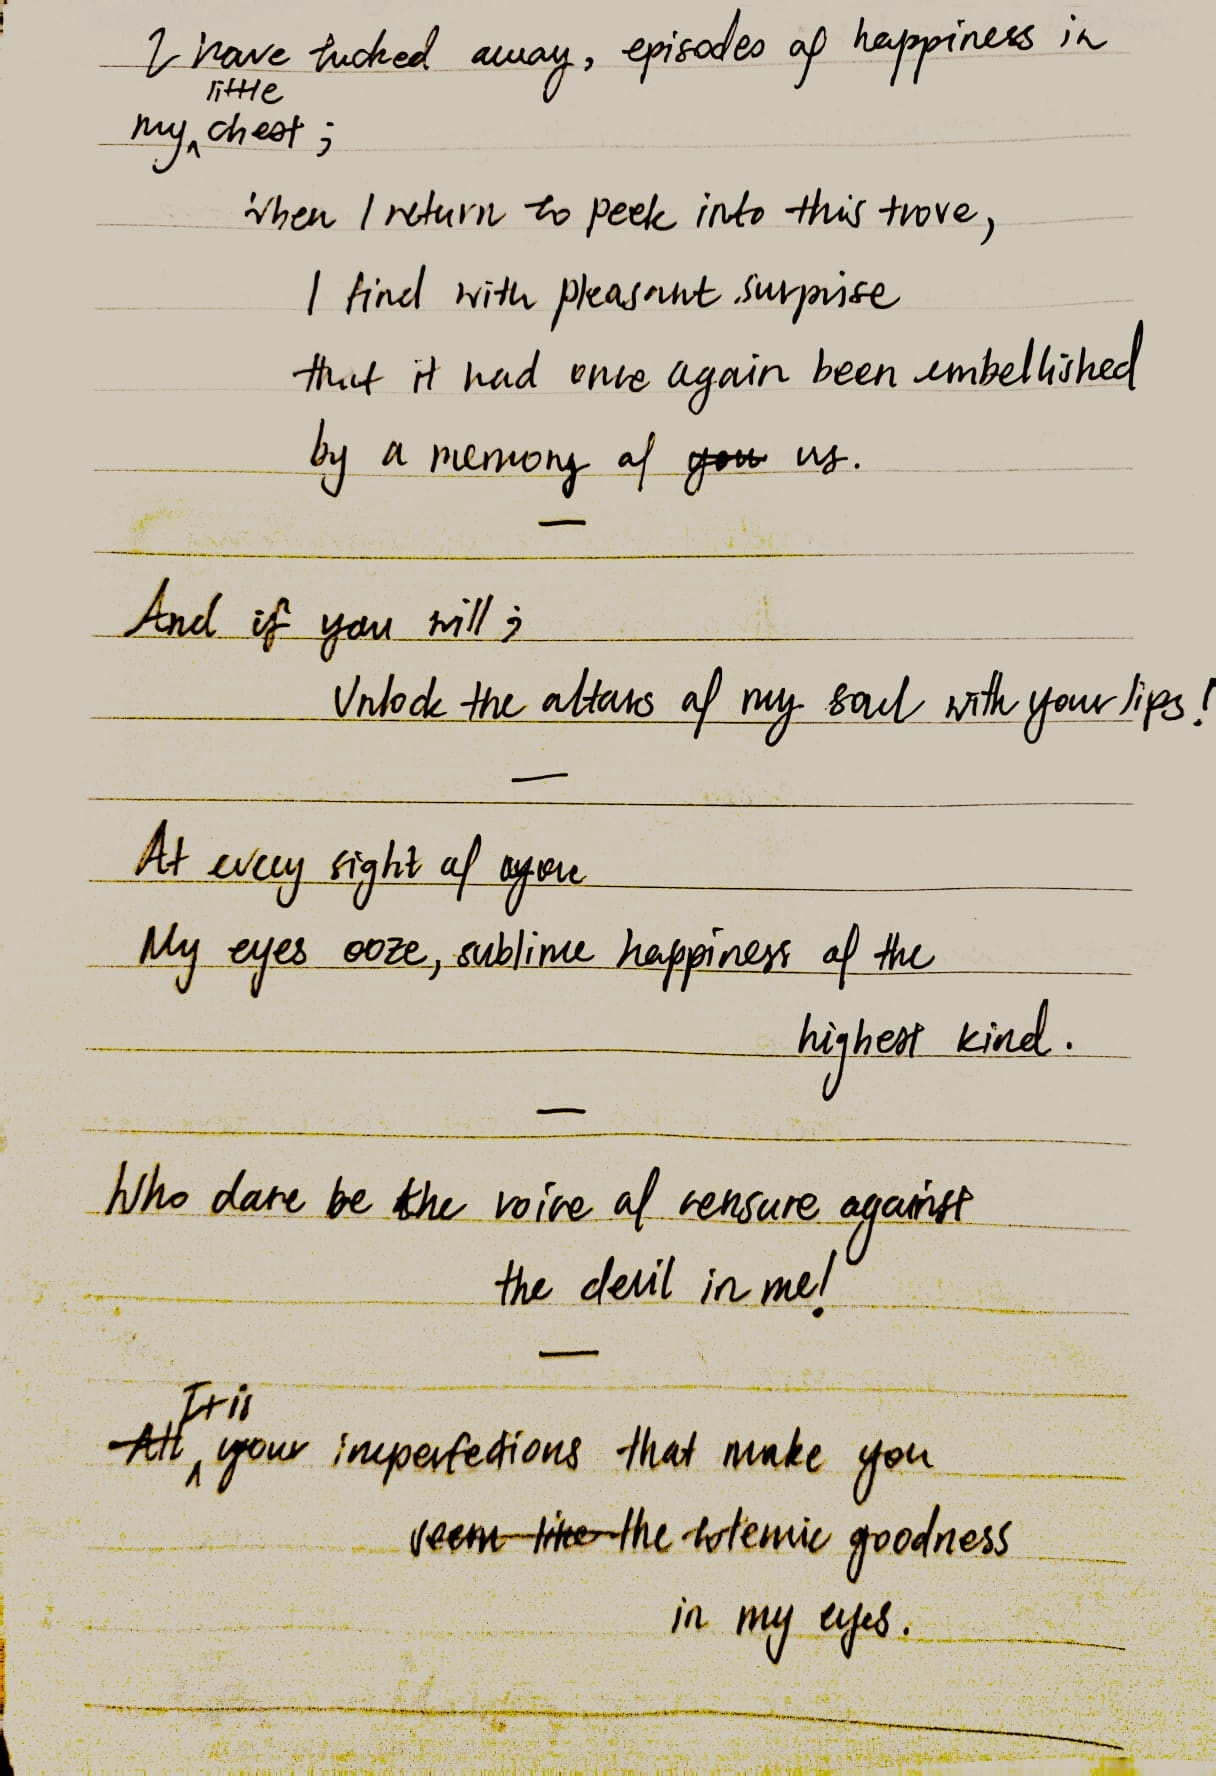 I have tucked away, episodes of happiness in
my ^ little chest ;
when I return to peek into this trove,
I find with pleasant surprise
that it had once again been embellished
by a memory of you us.
—
And if you will ;
Unlock the altars of my soul with your lips!
—
At every sight of you
My eyes ooze, sublime happiness of the
highest kind.
—
Who dare be the voice of censure against
the devil in me!
—
All ^ It is your imperfections that make you
seem like the totemic goodness
in my eyes.